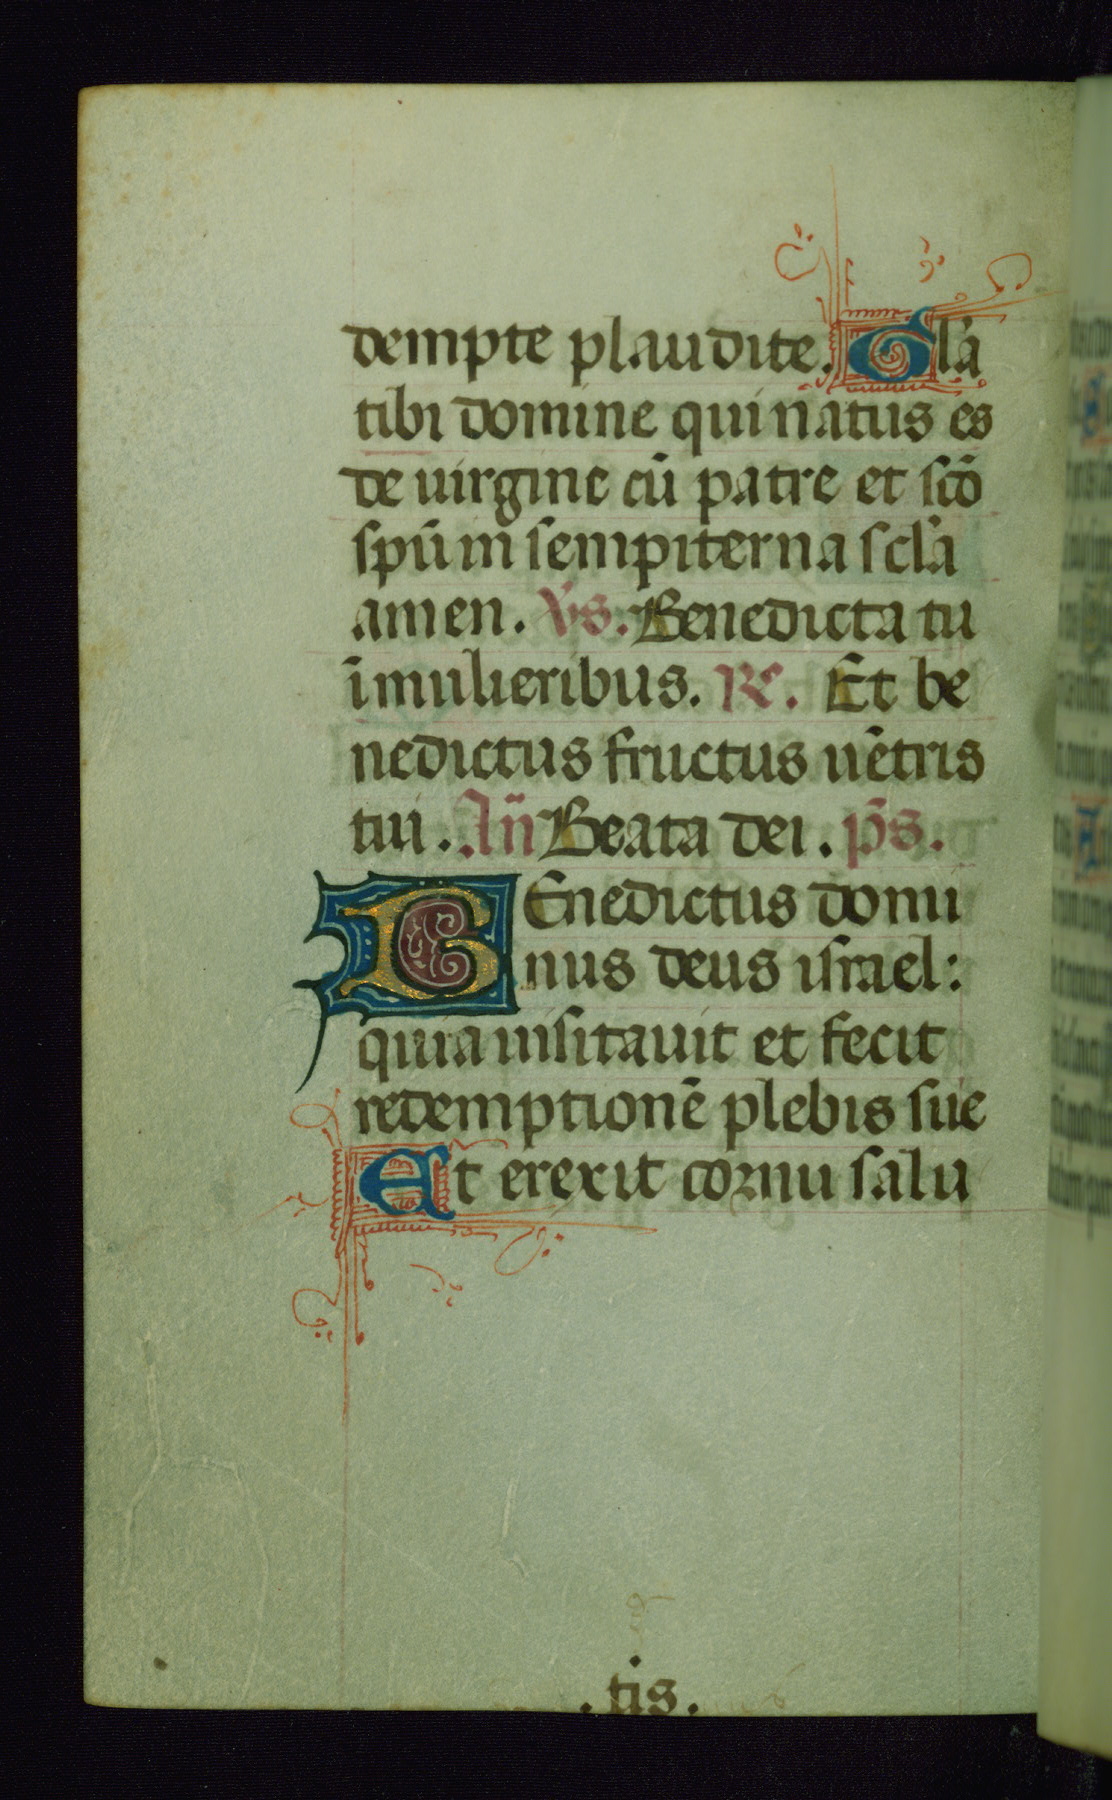 dempte plaudite. Gla
tibi domine qui natus es
de uirgine cū patre et sc̄o
spū in sempiterna secl̄a
amen. V̄s. Benedicta tu
ī mulieribus. Re. Et be
nedictus fructus uētris
tui. An̄ Beata dei. p̄s.
BEnedictus domi
nus deus israel:
quia uisitauit et fecit
redemptionē plebis sue
Et erexit cornu salu
.tis.